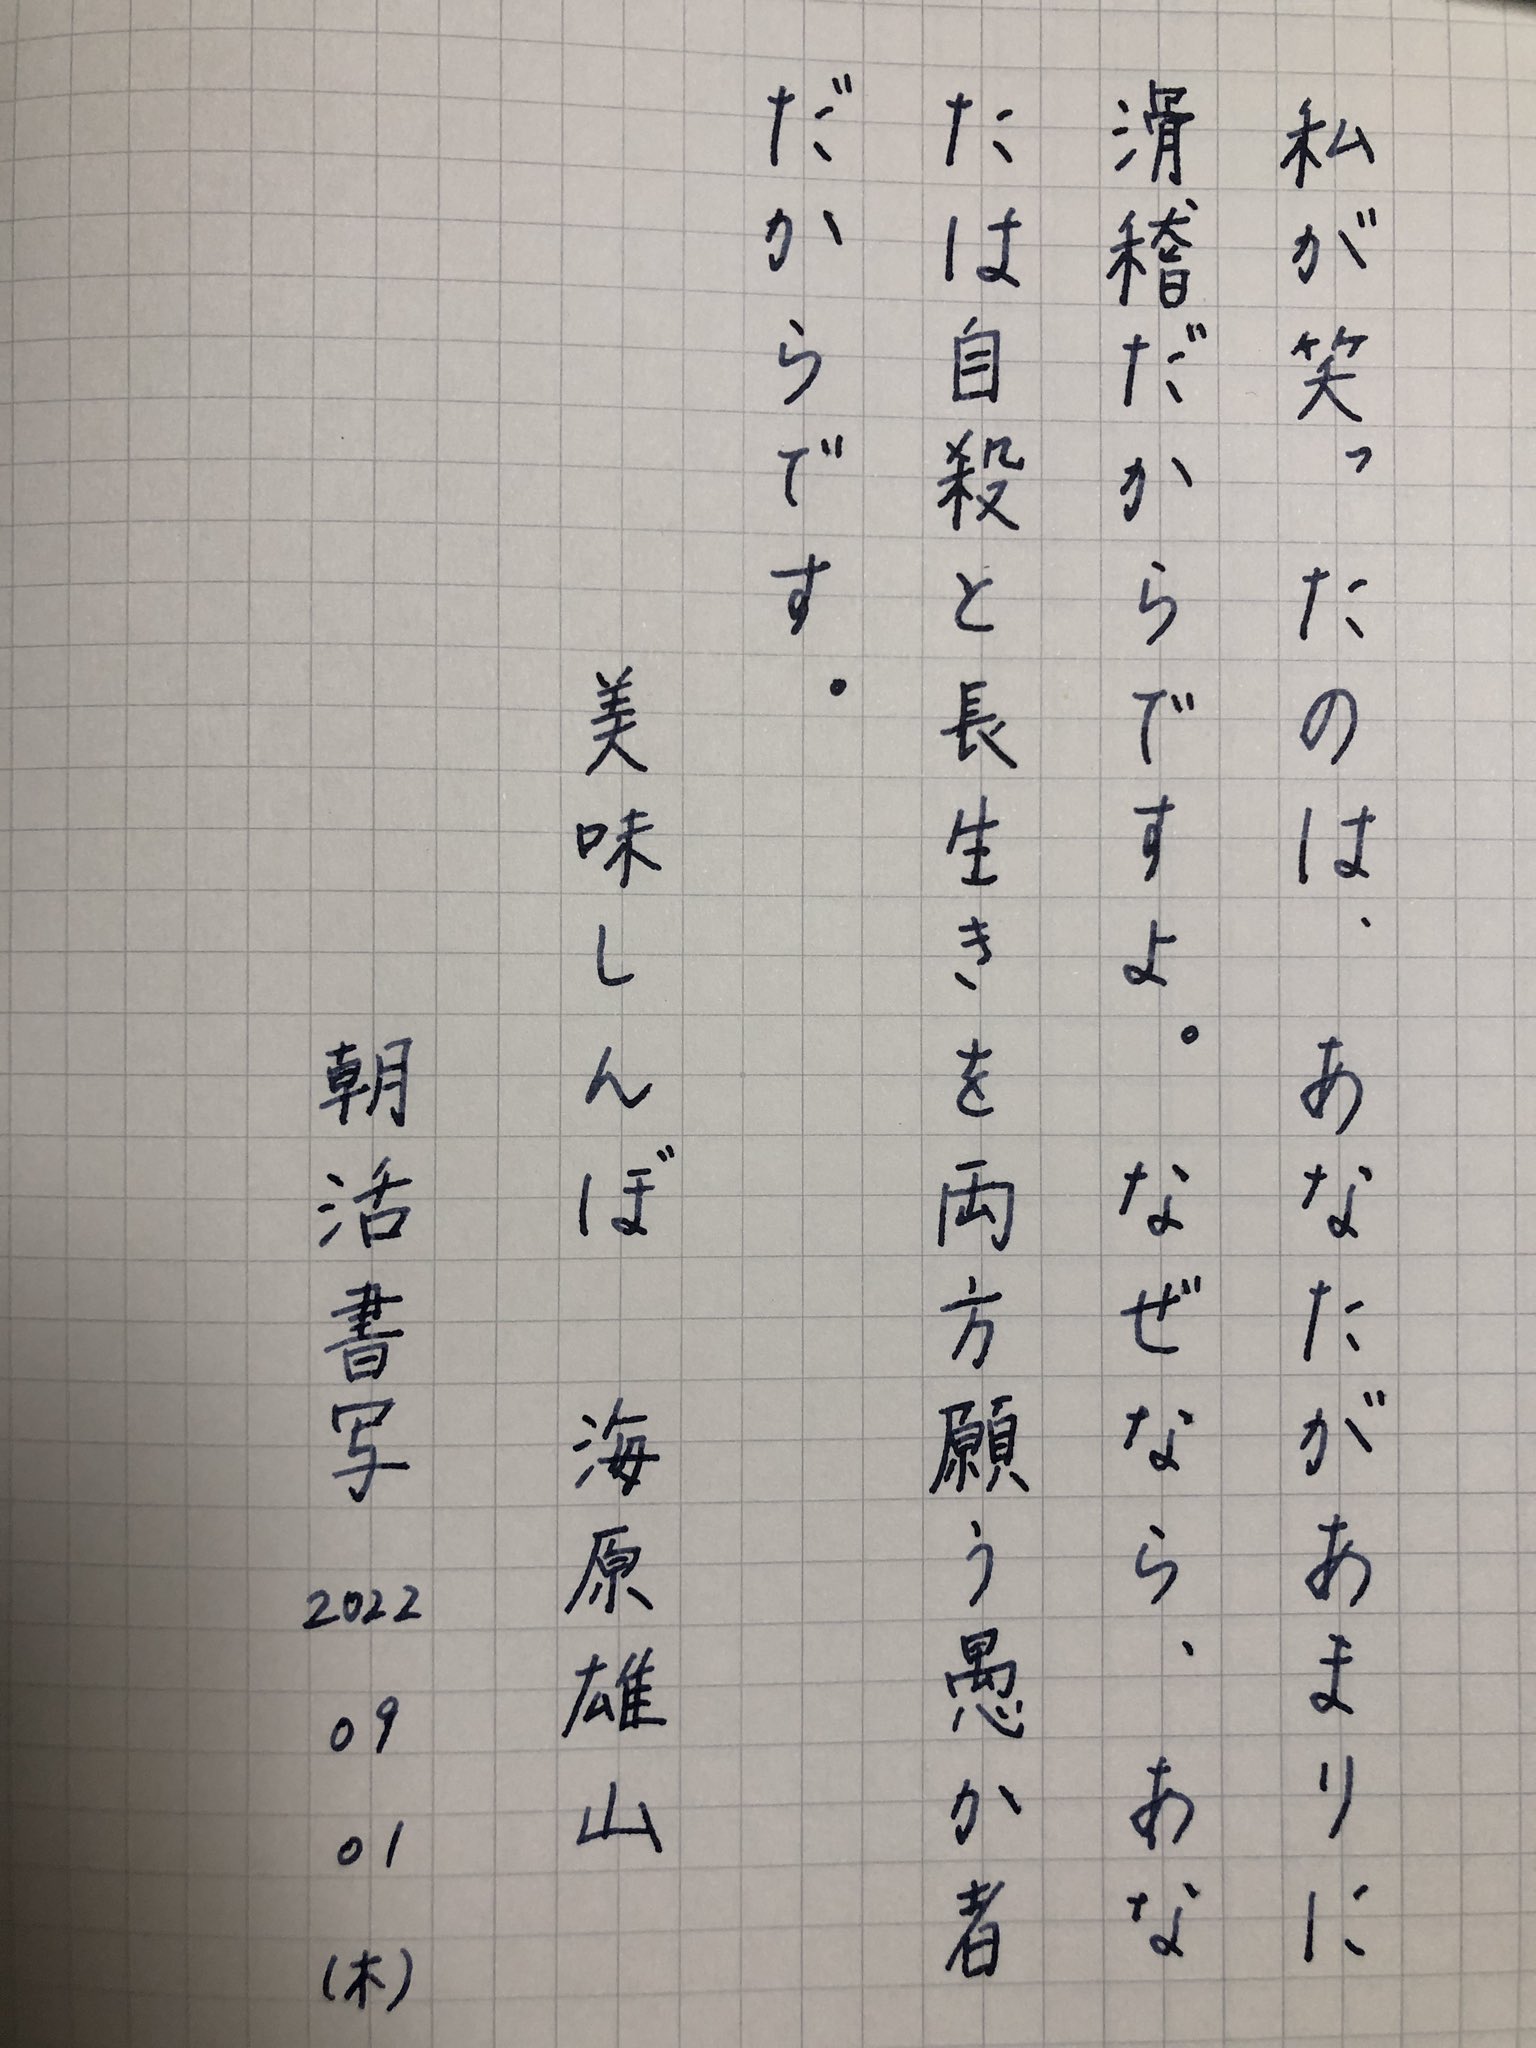 私が笑ったのは、あなたがあまりに
滑稽だからですよ。なぜなら、あな
たは自殺と長生きを両方願う愚か者
だからです。
美味しんぼ 海原雄山
朝活書写 2022 09 01 (木)